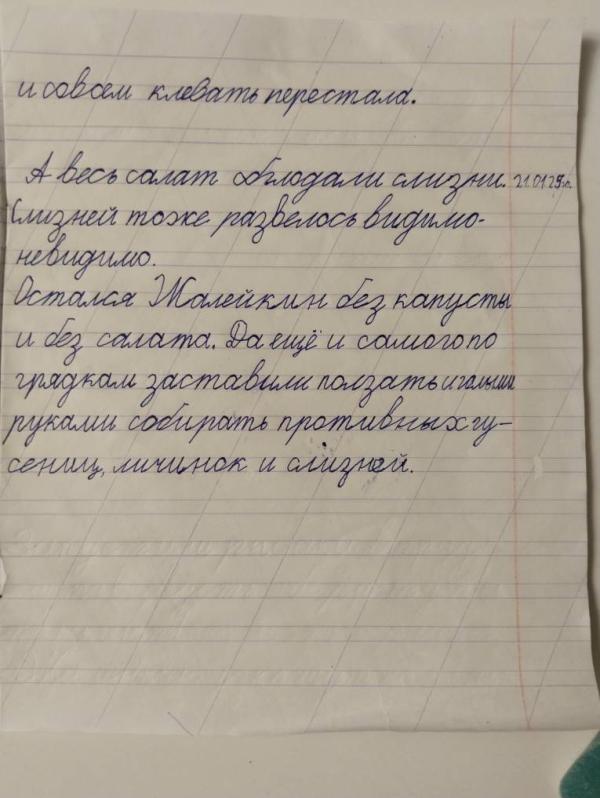 и совсем клевать перестала.
А весь салат обглодали слизни. 21.01.25г.
Слизней тоже развелось видимо-
невидимо.
Остался Жалейкин без капусты
и без салата. Да ещё и самого по
грядкам заставили ползать и голыми
руками собирать противных гу-
сениц, личинок и слизней.